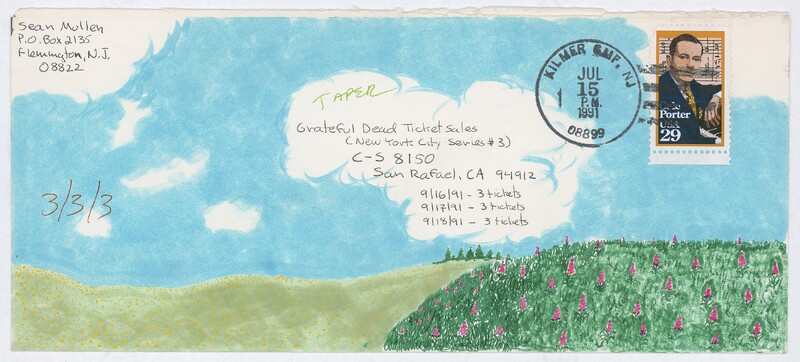 Sean Mullen
P.O. Box 2135
Flemington, N.J.
08822
TAPER
Grateful Dead Ticket Sales
(New York City Series #3)
C-S 8150
San Rafael, CA 94912
9/16/91 - 3 tickets
9/17/91 - 3 tickets
9/18/91 - 3 tickets
3/3/3
KILMER GMF, NJ
JUL
15
P.M.
1991
08899
Porter
USA
29